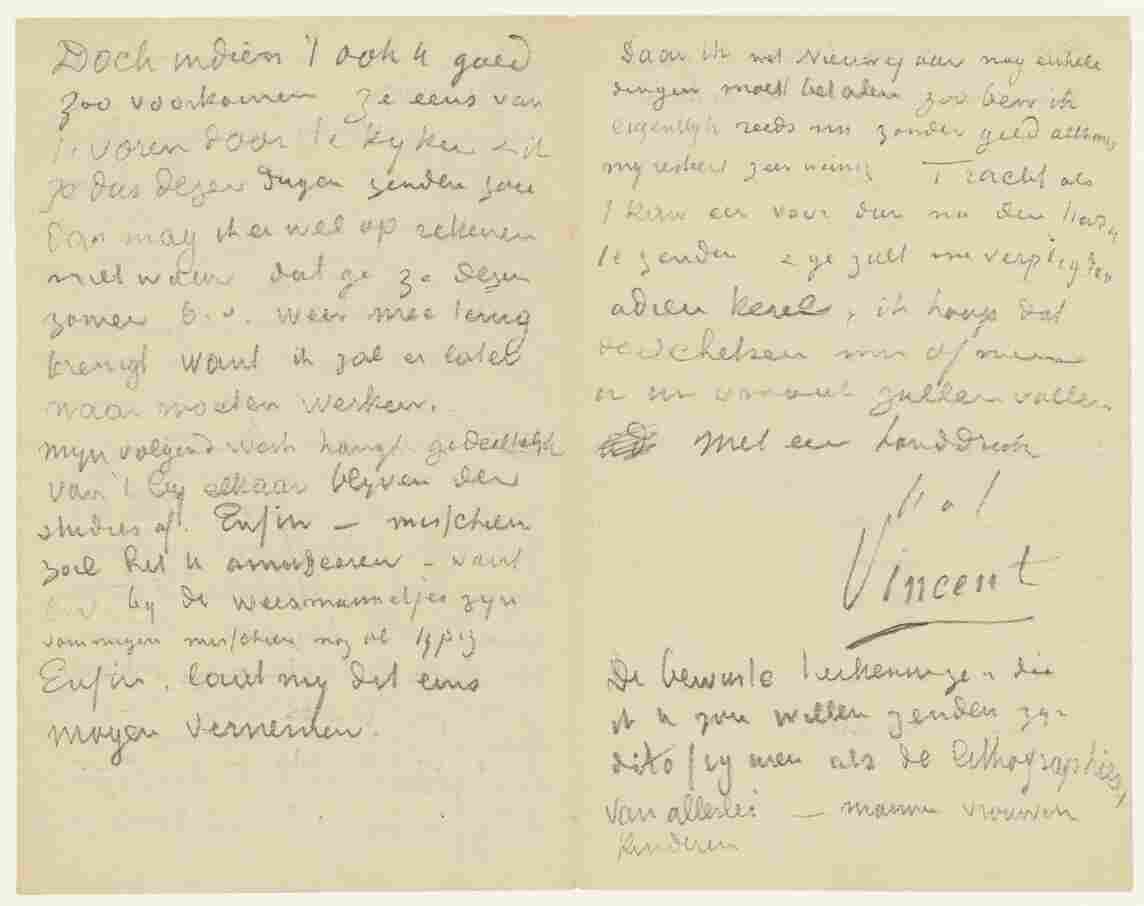 Doch indien 't ook u goed
zoo voorkomen ze eens van
te voren door te kyken wil
ge dus dezer dagen zenden zou
Dan mag ik er wel op rekenen
niet waar dat ge ze dezen
zomer b.v. weer mee terug
brengt want ik zal er later
naar moeten werken.
myn volgend werk hangt gedeeltelyk
van 't by elkaar blyven der
studies af. Enfin – misschien
zal het u amuseeren – want
by de weesmannetjes zyn
sommigen misschien nog al typig
Enfin, laat my dit eens
mogen vernemen.
Daar ik met Nieuwejaar nog enkele
dingen moest betalen zoo ben ik
eigentlyk reeds nu zonder geld althans
my resteert zeer weinig Tracht als
't kan een voor den na den
te zenden & ge zult me verpligten
adieu kerel, ik hoop dat
schetsen min of meer
er in zullen vallen.
Met een handdruk
t.à t.
Vincent
De bewuste teekeningen die
ik u zou willen zenden zyn
dito fig men als de lithographies
van allerlei – mannen vrouwen
kinderen